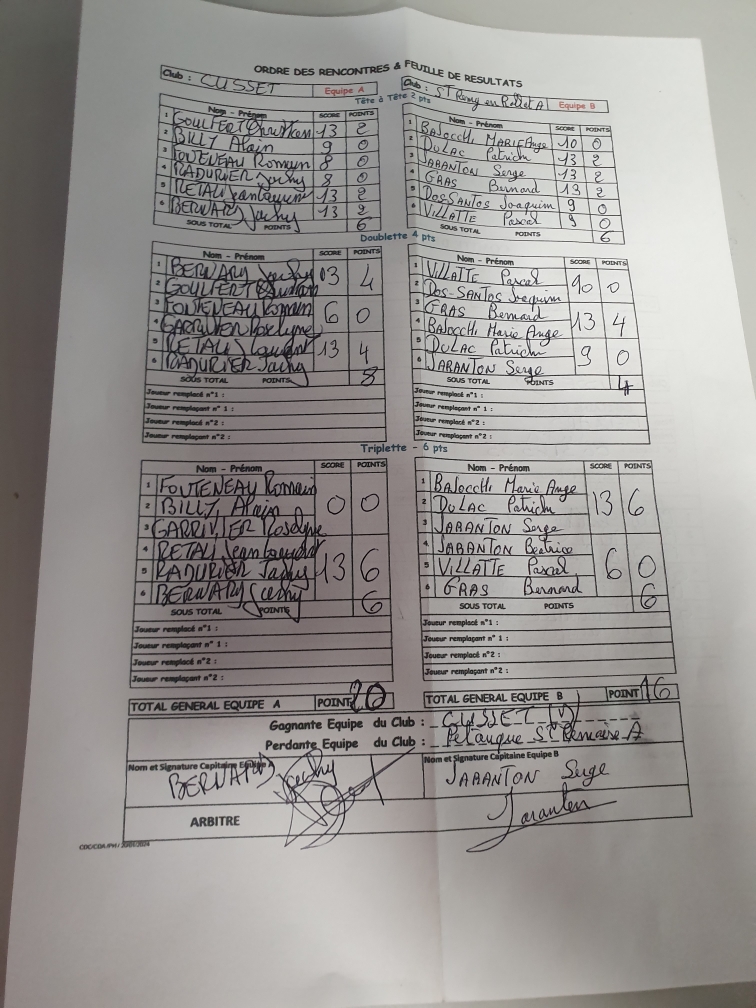 ORDRE DES RENCONTRES & FEUILLE DE RESULTATS
Club : CUSSET Equipe A
Club : ST Remy en Rollat A Equipe B
Tête à Tête 2 pts
Nom - Prénom SCORE POINTS
1 GOULFERT Christian 13 2
2 BILLY Alain 9 0
3 FONTENEAU Romain 8 0
4 RADURIER Jacky 8 0
5 RETALI Jean Laurent 13 2
6 BERNARD Jacky 13 2
SOUS TOTAL POINTS 6
Nom - Prénom SCORE POINTS
1 BAJOCCHI MARIE Ange 10 0
2 DULAC Patrick 13 2
3 JARANTON Serge 13 2
4 GRAS Bernard 13 2
5 DOS SANTOS Joaquim 9 0
6 VILLATTE Pascal 9 0
SOUS TOTAL POINTS 6
Doublette 4 pts
Nom - Prénom SCORE POINTS
1 BERNARD Jacky 13 4
2 GOULFERT Christian
3 FONTENEAU Romain 6 0
4 GARRIVIER Roselyne
5 RETALI Laurent 13 4
6 RADURIER Jacky
SOUS TOTAL POINTS 8
Joueur remplacé n°1 :
Joueur remplaçant n° 1 :
Joueur remplacé n°2 :
Joueur remplaçant n°2 :
Nom - Prénom SCORE POINTS
1 VILLATTE Pascal 10 0
2 DOS-SANTOS Joaquim
3 GRAS Bernard 13 4
4 BAJOCCHI Marie Ange
5 DULAC Patrick 9 0
6 JARANTON Serge
SOUS TOTAL POINTS 4
Joueur remplacé n°1 :
Joueur remplaçant n° 1 :
Joueur remplacé n°2 :
Joueur remplaçant n°2 :
Triplette - 6 pts
Nom - Prénom SCORE POINTS
1 FONTENEAU Romain 0 0
2 BILLY Alain
3 GARRIVIER Roselyne
4 RETALI Jean Laurent 13 6
5 RADURIER Jacky
6 BERNARD Jacky
SOUS TOTAL POINTS 6
Joueur remplacé n°1 :
Joueur remplaçant n° 1 :
Joueur remplacé n°2 :
Joueur remplaçant n°2 :
Nom - Prénom SCORE POINTS
1 BAJOCCHI Marie Ange 13 6
2 DULAC Patrick
3 JARANTON Serge
4 JARANTON Béatrice 6 0
5 VILLATTE Pascal
6 GRAS Bernard
SOUS TOTAL POINTS 6
Joueur remplacé n°1 :
Joueur remplaçant n° 1 :
Joueur remplacé n°2 :
Joueur remplaçant n°2 :
TOTAL GENERAL EQUIPE A POINT 20
TOTAL GENERAL EQUIPE B POINT 16
Gagnante Equipe du Club : CUSSET
Perdante Equipe du Club : Pétanque St Rémoise A
Nom et Signature Capitaine Equipe A
BERNARD Jacky
Nom et Signature Capitaine Equipe B
JARANTON Serge
Jaranton
ARBITRE